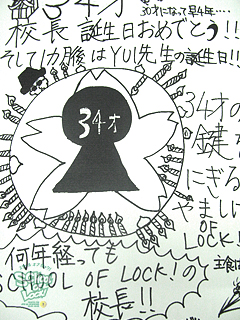 34才
30才になって早4年‥‥
校長誕生日おめでとう!!
そして1カ月後はYUI先生の誕生日!!
34才
34才の
鍵を
にぎる
やましげ
OF
LOCK!
何年経っても
SCHOOL OF LOCK!の
校長!!